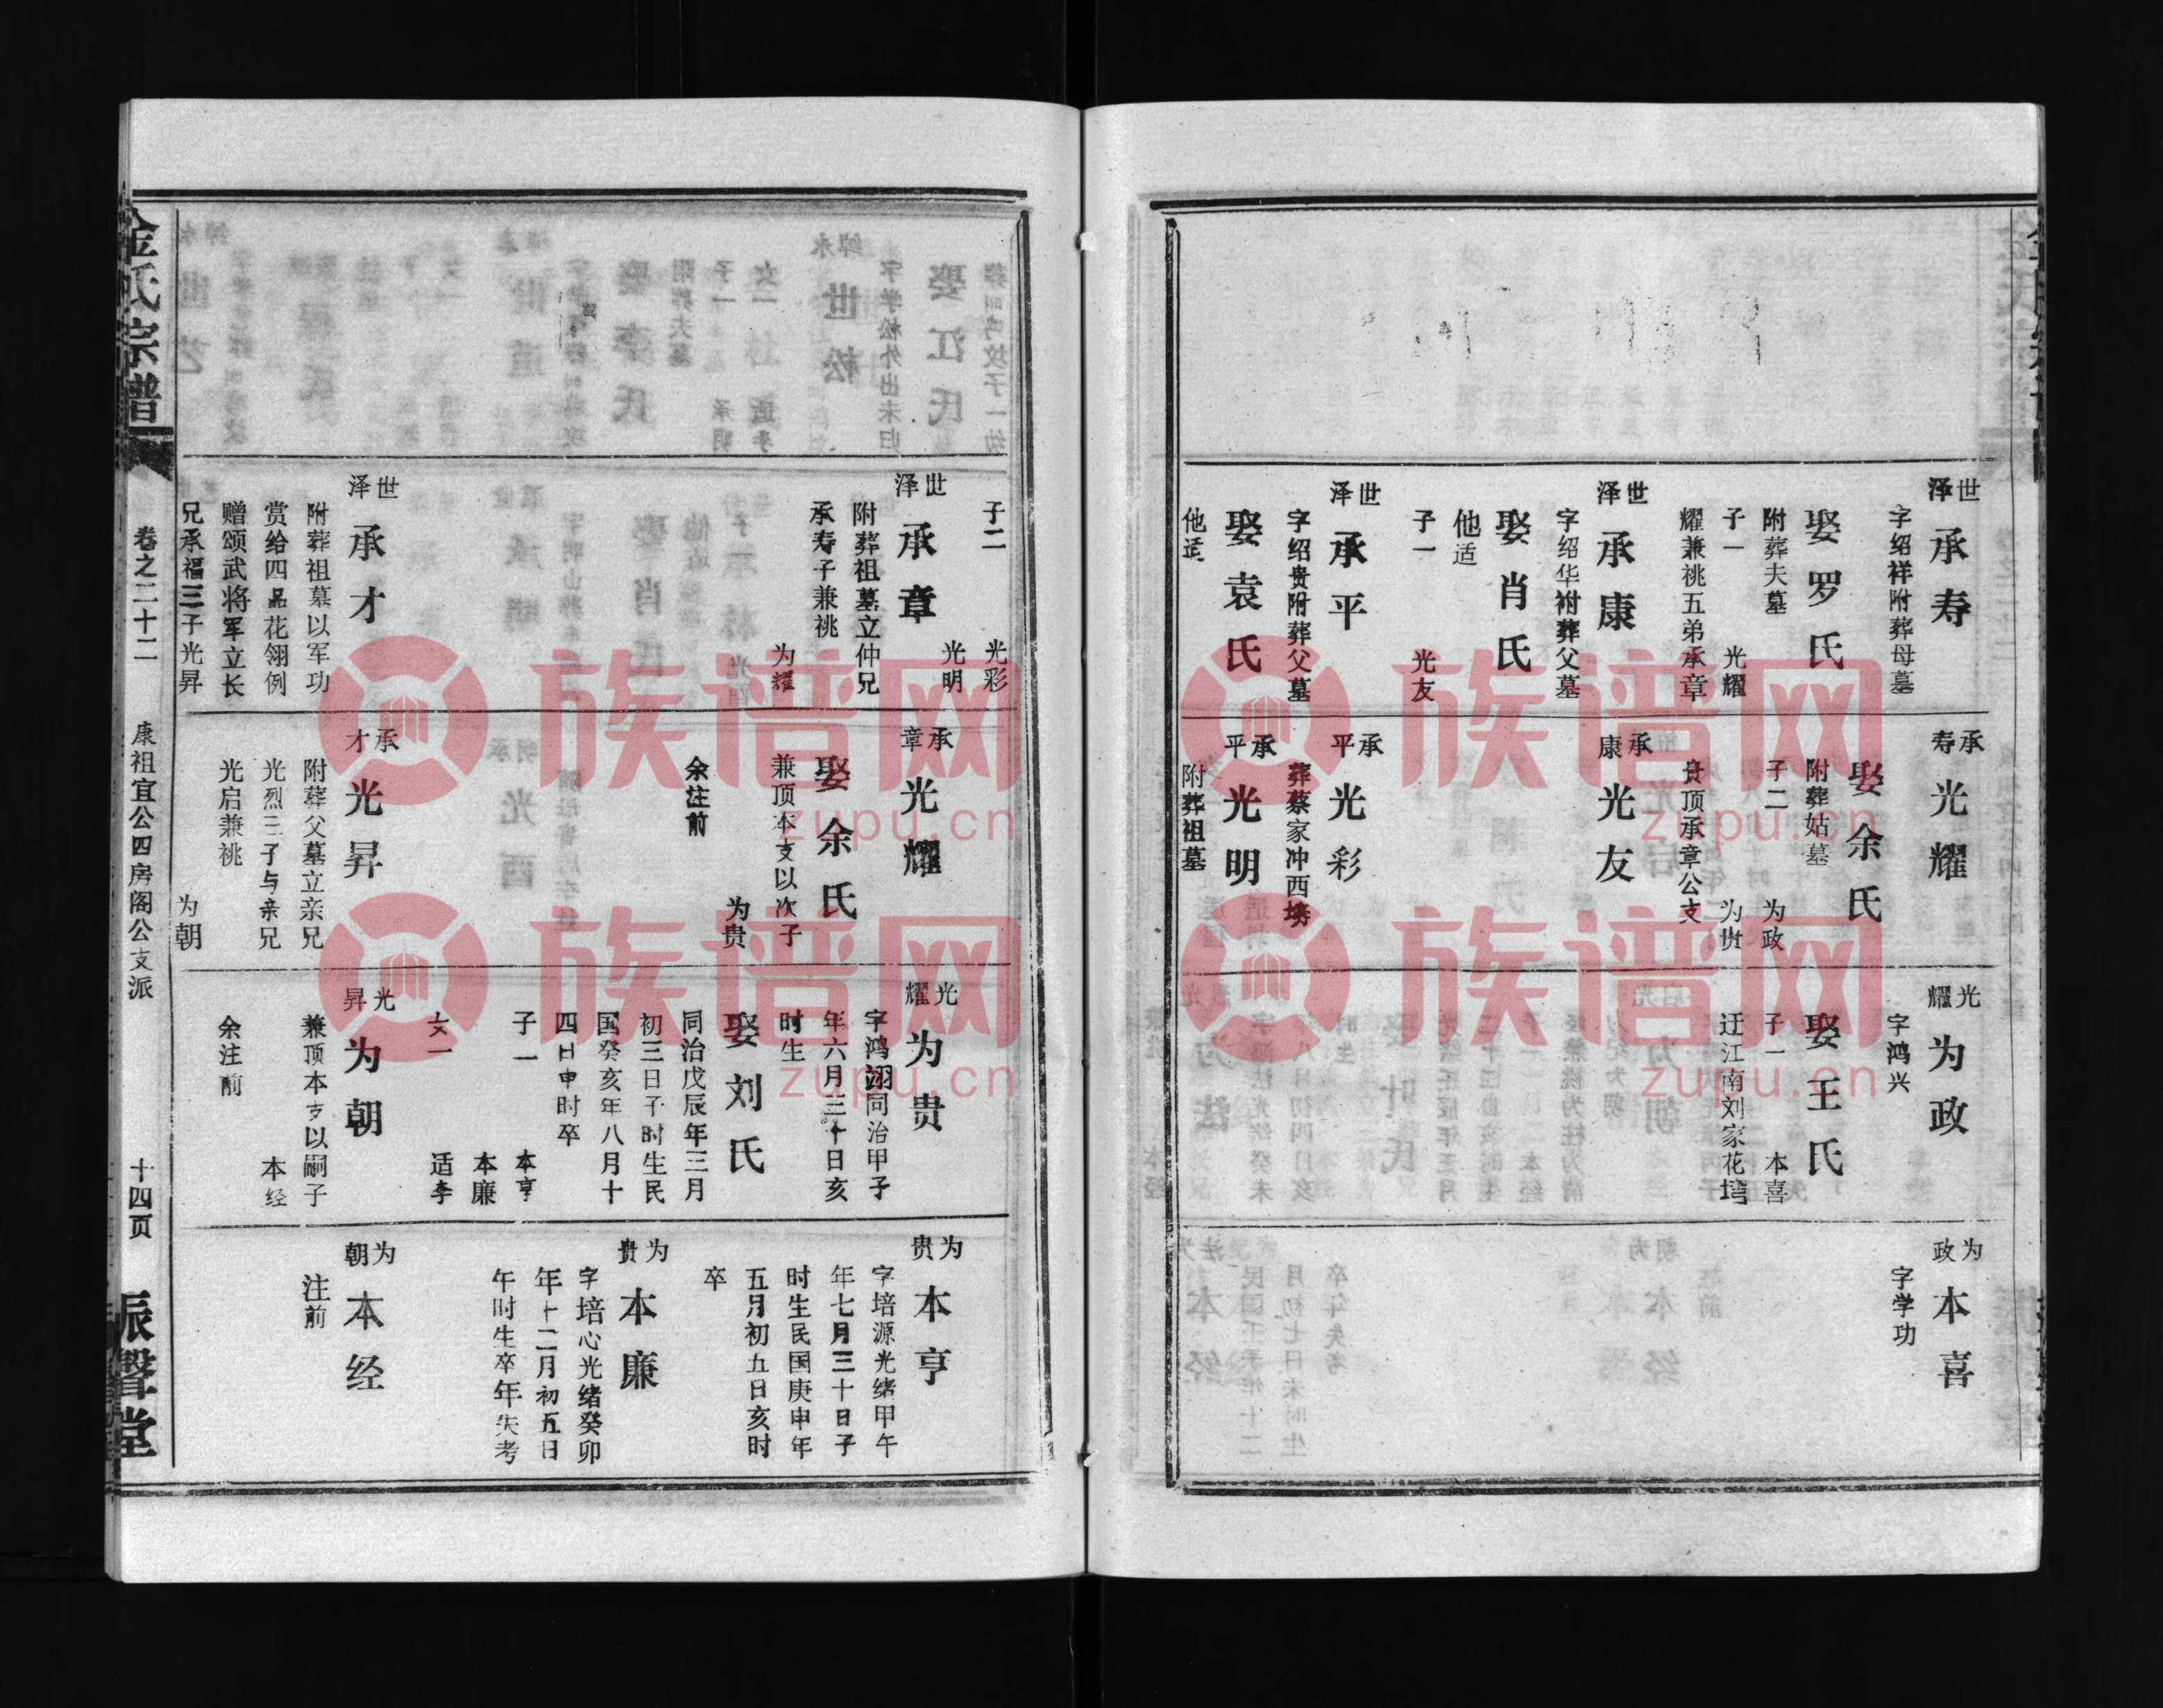 世泽
承寿
字绍祥附葬母墓
娶罗氏
附葬夫墓
子一 光耀
耀兼祧五弟承章
世泽
承康
字绍华祔葬父墓
娶肖氏
他适
子一 光友
世泽
承平
字绍贵附葬父墓
娶袁氏
他适
承寿
光耀
娶余氏
附葬姑墓
子二 为政
为贵
贵顶承章公支
承康
光友
承平
光彩
葬蔡家冲西塝
承平
光明
附葬祖墓
光耀
为政
字鸿兴
娶王氏
子一 本喜
迁江南刘家花塆
为政
本喜
字学功
子二 光彩
光明
世泽
承章
附葬祖墓立仲兄
承寿子兼祧
为耀
世泽
承才
附葬祖墓以军功
赏给四品花翎例
赠颂武将军立长
兄承福三子光昇
承章
光耀
娶余氏
兼顶本支以次子
为贵
余注前
承才
光昇
附葬父墓立亲兄
光烈三子与亲兄
光启兼祧
为朝
光耀
为贵
字鸿翊同治甲子
年六月三十日亥
时生
娶刘氏
同治戊辰年三月
初三日子时生民
国癸亥年八月十
四日申时卒
子一 本亨
本廉
女一 适李
光昇
为朝
兼顶本支以嗣子
本经
余注前
为贵
本亨
字培源光绪甲午
年七月三十日子
时生民国庚申年
五月初五日亥时
卒
为贵
本廉
字培心光绪癸卯
年十二月初五日
午时生卒年失考
为朝
本经
注前
金氏宗谱
卷之二十二
康祖宜公四房阁公支派
十四页
振声堂
族谱网
zupu.cn
族谱网
zupu.cn
族谱网
zupu.cn
族谱网
zupu.cn